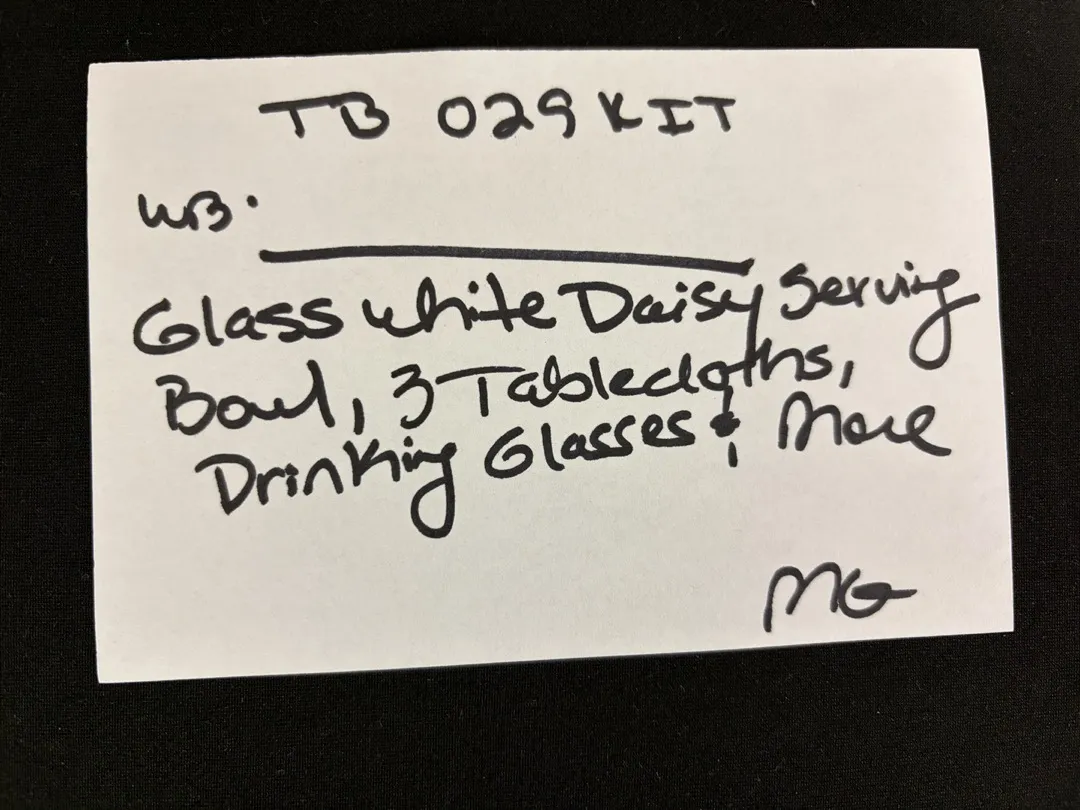 TB 029 KIT
WB.
Glass white Daisy Serving
Bowl, 3 Tablecloths,
Drinking Glasses & More
MG